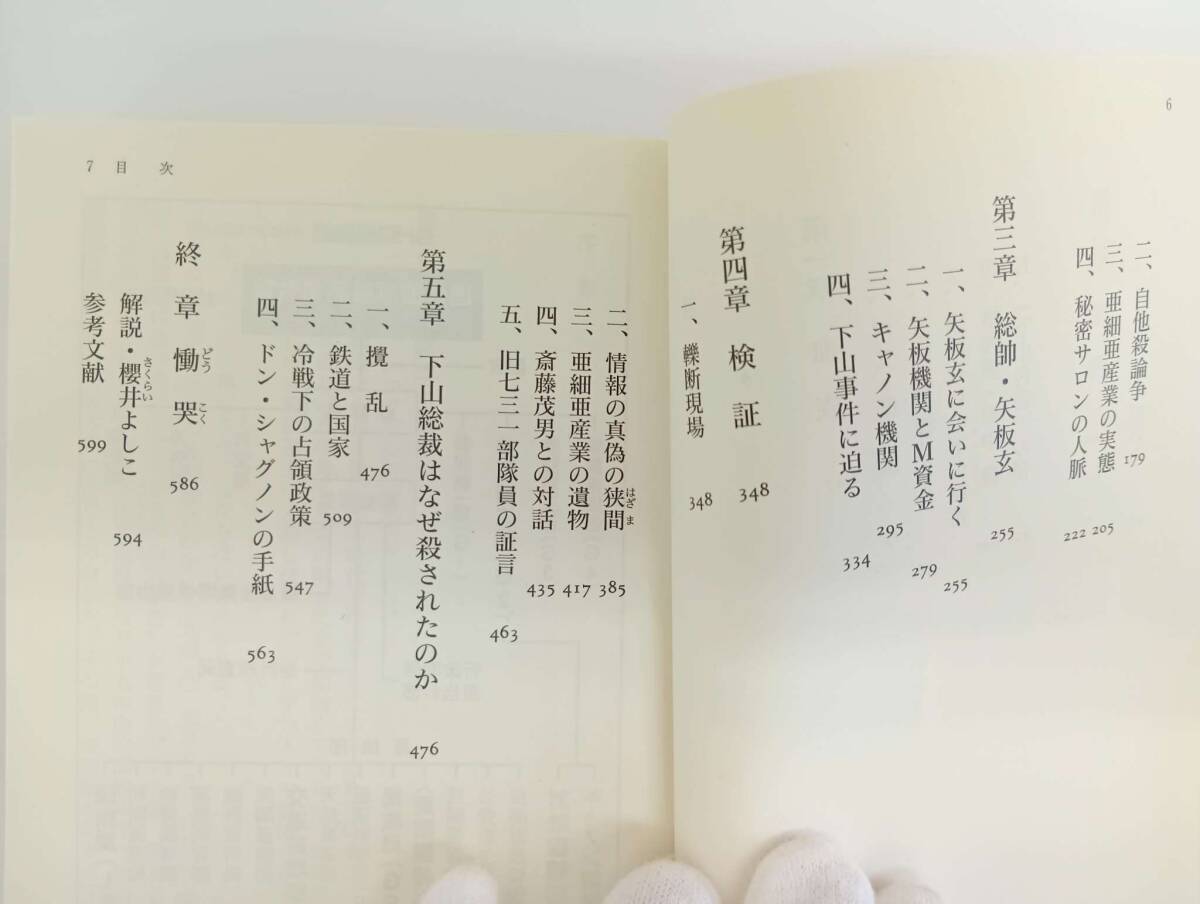 6
二、自他殺論争 179
三、亜細亜産業の実態 205
四、秘密サロンの人脈 222
第三章 総帥・矢板玄 255
一、矢板玄に会いに行く 255
二、矢板機関とM資金 279
三、キャノン機関 295
四、下山事件に迫る 334
第四章 検証 348
一、轢断現場 348
7 目次
二、情報の真偽の狭間 385
はざま
三、亜細亜産業の遺物 417
四、斎藤茂男との対話 435
五、旧七三一部隊員の証言 463
第五章 下山総裁はなぜ殺されたのか 476
一、攪乱 476
二、鉄道と国家 509
三、冷戦下の占領政策 547
四、ドン・シャグノンの手紙 563
終章 慟哭 586
どうこく
解説・櫻井よしこ 594
さくらい
参考文献 599